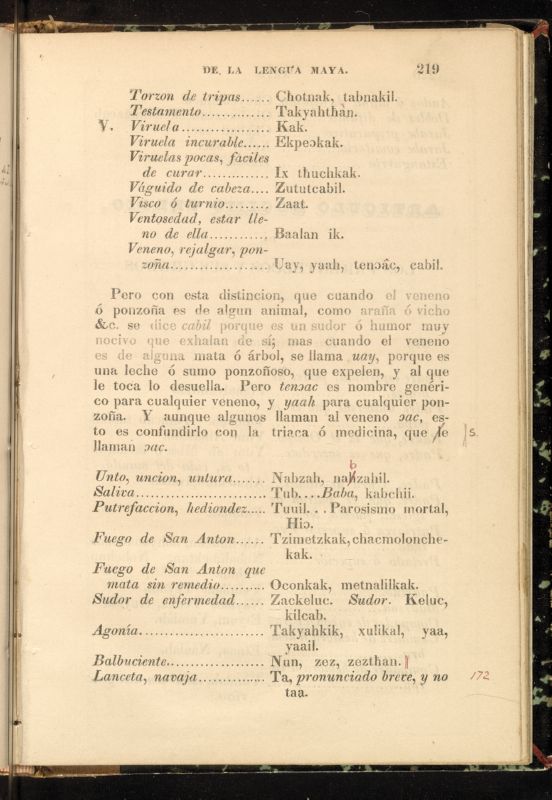 DE LA LENGUA MAYA. 219
Torzon de tripas...... Chotnak, tabnakil.
Testamento............. Takyahthàn.
V. Viruela.................. Kak.
Viruela incurable...... Ekpeɔkak.
Viruelas pocas, fàciles
de curar.............. Ix thuchkak.
Váguido de cabeza.... Zututcabil.
Visco ó turnio......... Zaat.
Ventosedad, estar lle-
no de ella............, Baalan ik.
Veneno, rejalgar, pon-
zoña.................... Uay, yaah, tenɔâc, cabil.
Pero con esta distincion, que cuando el veneno
ó ponzoña es de algun animal, como araña ó vicho
&c. se dice cabil porque es un sudor ó humor muy
nocivo que exhalan de sí; mas cuando el veneno
es de alguna mata ó árbol, se llama uay, porque es
una leche ó sumo ponzoñoso, que expelen, y al que
le toca lo desuella. Pero tenɔac es nombre genéri-
co para cualquier veneno, y yaah para cualquier pon-
zoña. Y aunque algunos llaman al veneno ɔac, es-
to es confundirlo con la triaca ó medicina, que le s.
llaman ɔac.
b
Unto, uncion, untura....... Nabzah, nahzahil.
Saliva........................... Tub....Baba, kabchii.
Putrefaccion, hediondez..... Tuuil... Parosismo mortal,
Hiɔ.
Fuego de San Anton...... Tzimetzkak, chacmolonche-
kak.
Fuego de San Anton que
mata sin remedio.......... Oconkak, metnalilkak.
Sudor de enfermedad...... Zackeluc. Sudor. Keluc,
kilcab.
Agonía.......................... Takyahkik, xulikal, yaa,
yaail.
Balbuciente.................... Nun, zez, zezthan.
Lanceta, navaja.............. Ta, pronunciado breve, y no 172
taa.